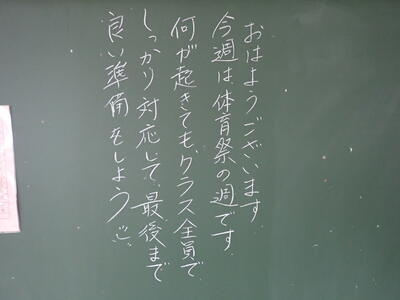 おはようございます
今週は体育祭の週です
何が起きてもクラス全員で
しっかり対応して、最後まで
良い準備をしよう